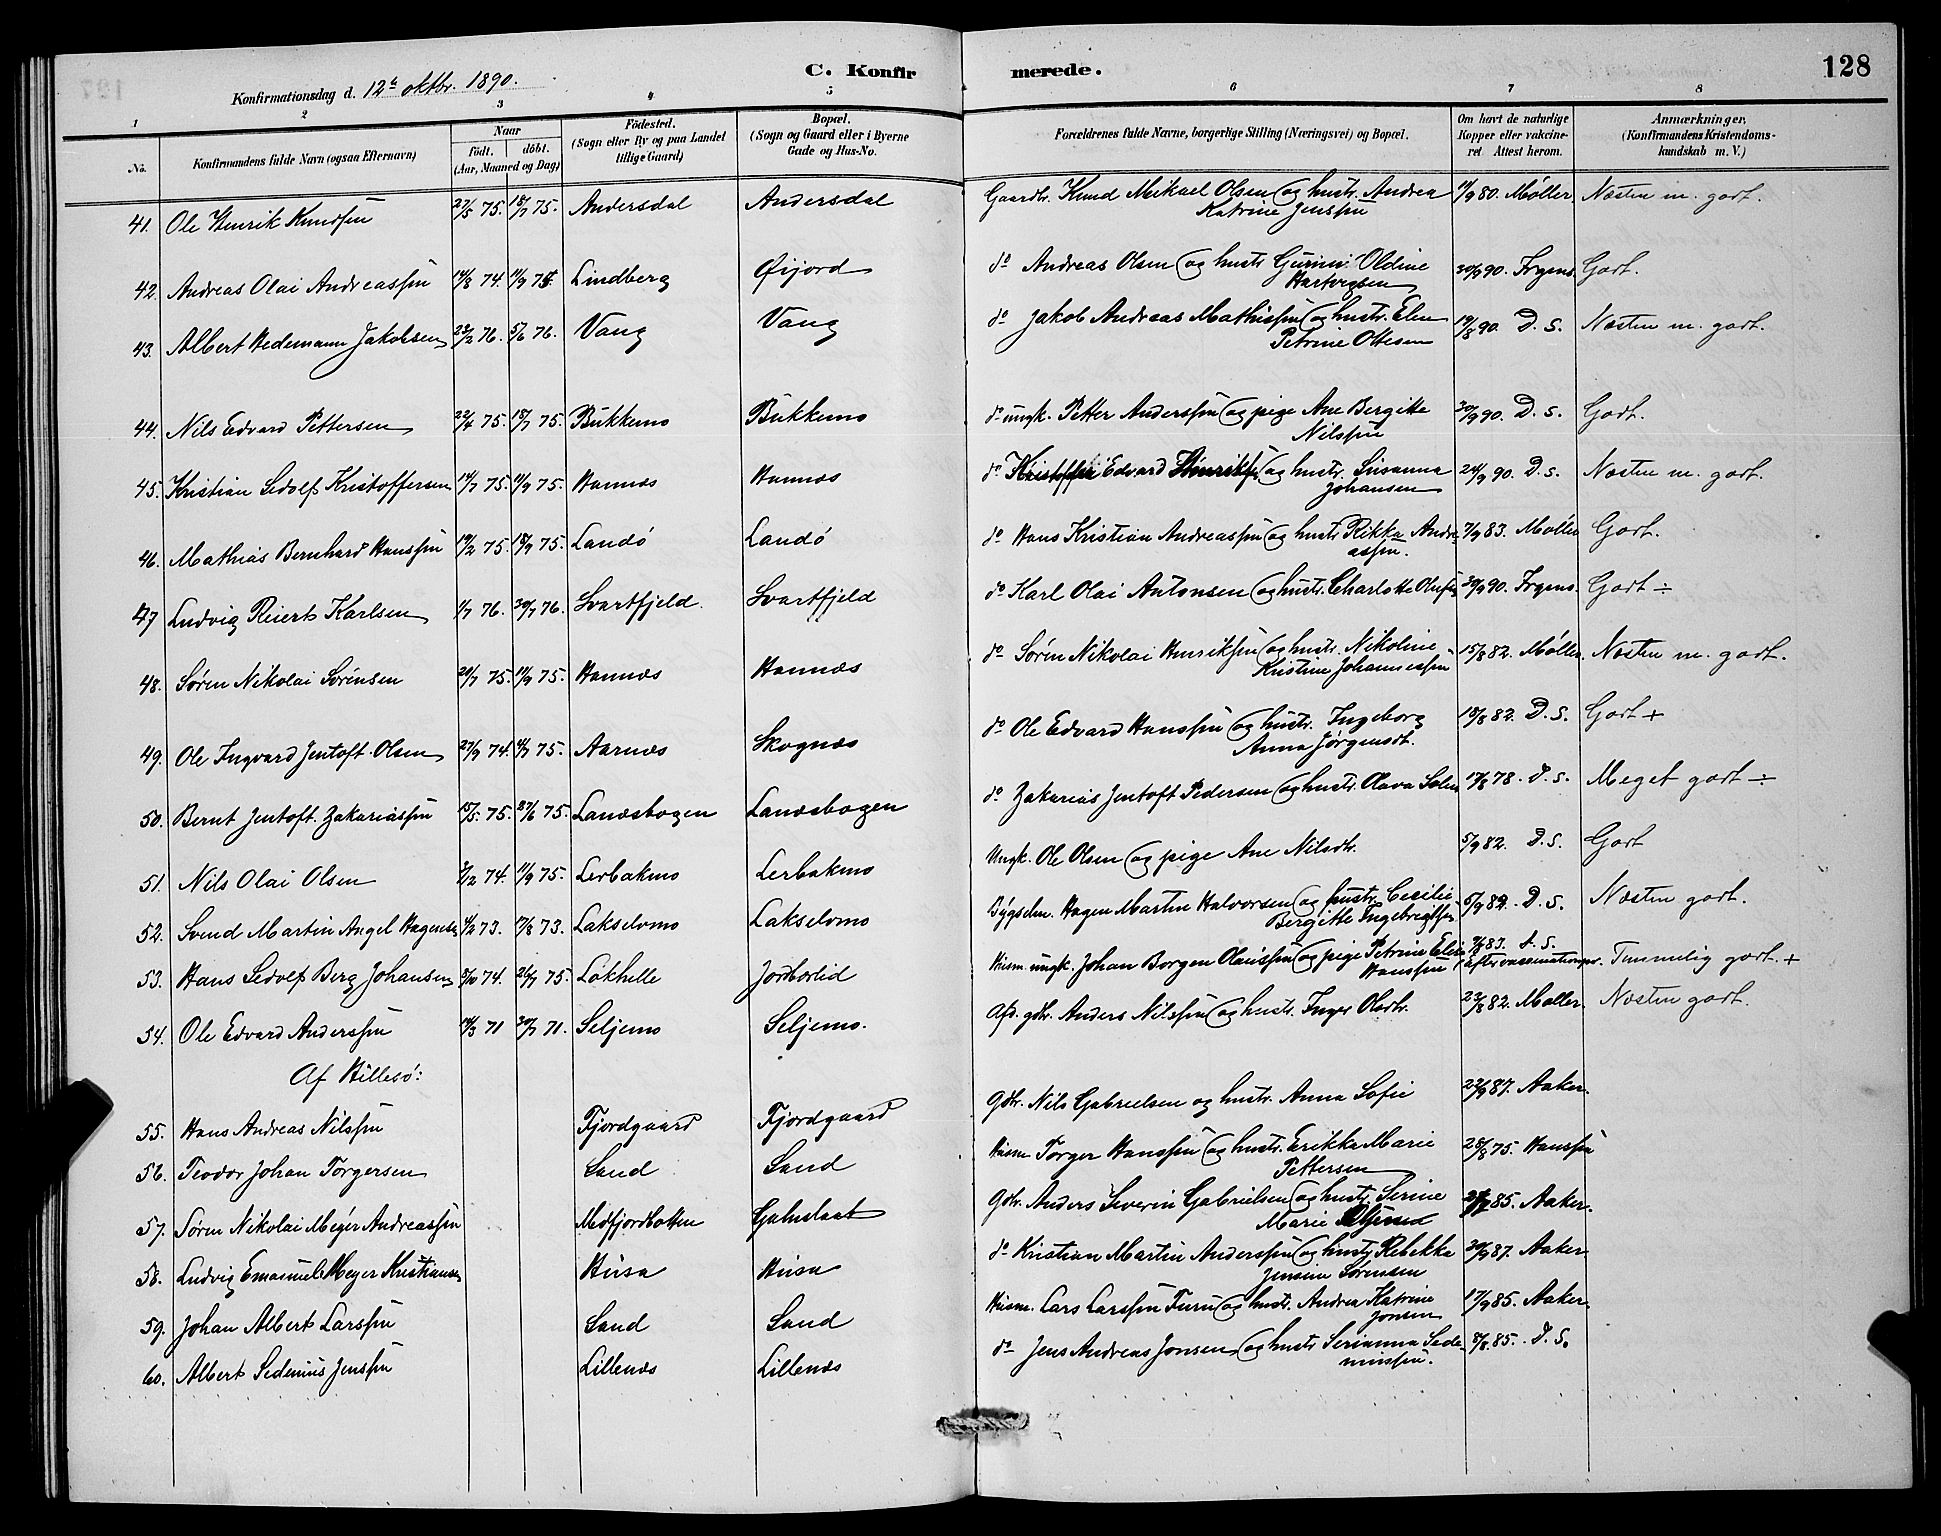 128
C. Konfirmerede.
Konfirmationsdag d. 12te oktbr. 1890.
1 2 3 4 5 6 7 8
No.
Konfirmandens fulde Navn (ogsaa Efternavn)
Naar
født. døbt.
(Aar, Maaned og Dag)
Fødested.
(Sogn eller By og paa Landet
tillige Gaard)
Bopæl.
(Sogn og Gaard eller i Byerne
Gade og Hus-No.
Forældrenes fulde Navne, borgerlige Stilling (Næringsvei) og Bopæl.
Om havt de naturlige
Kopper eller vakcine-
ret Attest herom.
Anmærkninger.
(Konfirmandens Kristendoms-
kundskab m. V.)
41. Ole Henrik Knudsen 27/5 75. 18/7 75. Andersdal Andersdal Gaardbr. Knud Mikael Olsen og hustr. Andrea 11/9 80. Møller Næsten m. godt.
Katrine Jenssen
42. Andreas Olai Andreassen 14/8 74. 11/9 75 Lindberg Øijord do Andreas Olsen og hustr. Gurine Oldine 30/9 90. Irgens. Godt.
Hartvigsen
43. Albert Hedemann Jakobsen 23/2 76. 5/6 76. Vang Vang do Jakob Andreas Mathissen og hustr. Elen 19/8 90. D. s. Næsten m. godt.
Petrine Ottesen
44. Nils Edvard Pettersen 22/4 75. 18/7 75. Bukkemo Bukkemo do ungk. Petter Anderssen og pige Ane Bergitte 30/9 90. D. s. Godt.
Nilssen
45. Kristian Sedolf Kristoffersen 14/7 75. 11/9 75. Hamnæs Hamnæs do Kristoffer Edvard Henriksen og hustr. Susanna 24/9 90. D. s. Næsten m. godt.
Johansen
46. Mathias Bernhard Hanssen 19/2 75. 18/9 75. Landø Landø do Hans Kristian Andreassen og hustr. Rikka Andre- 7/9 83. Møller Godt.
assen.
47 Ludvig Reiert Karlsen 1/7 76. 30/7 76. Svartfjeld. Svartfjeld do Karl Olai Antonsen og hustr. Charlotte Olufs. 30/9 90. Irgens. Godt ÷
48. Søren Nikolai Sørensen 20/7 75. 11/9 75. Hamnæs Hamnæs do Søren Nikolai Henriksen og hustr. Nikoline 15/8 82. Møller. Næsten m. godt.
Kristine Johannessen
49. Ole Ingvard Jentoft Olsen 27/9 74. 4/7 75. Aarnæs Skognæs do Ole Edvard Hanssen og hustr. Ingeborg 18/8 82. D. S. Godt +
Anna Jørgensdt.
50. Bernt Jentoft Zakariassen 15/5. 75. 27/6 75. Lanæsbogen Lanæsbogen do Zakarias Jentoft Pedersen og hustr. Olava Salm. 17/8 78. D. s. Meget godt ÷
51. Nils Olai Olsen 3/12 74. 11/9 75. Lerbakmo Lerbakmo Ungk. Ole Olsen og pige Ane Nilsdtr. 5/9 82. D. S. Godt
52. Svend Martin Angel Hagensen 4/2 73. 17/8 73. Lakselvmo Lakselvmo Bygselm. Hagen Martin Halvorsen og hustr. Cecilie 6/9 82. D. S. Næsten godt.
Bergitte Ingebrigtsen
53. Hans Sedolf Berg Johansen 8/10 74. 26/7 75. Lakhelle Jordbærlid Husm. ungk. Johan Borgen Olaussen og pige Petrine Elise 9/8 83. D. S. Temmelig godt. +
Hanssen
54. Ole Edvard Anderssen 14/3 71 30/7 71. Seljemo Seljemo. Afd. gdbr. Anders Nilssen og hustr. Inger Olsdtr. 22/8 82. Møller. Næsten godt.
Af Hillesø:
55. Hans Andreas Nilssen Fjordgaard Fjordgaard Gdbr. Nils Gabrielsen og hustr. Anna Sofie 22/9 87. Aaker.
56. Teodor Johan Torgersen Sand Sand Husm Torger Hanssen og hustr. Erikka Marie 28/8 75. Hanssen
Pettersen
57. Søren Nikolai Meyer Andreassen Medfjordbotten Galnslaat Gdbr. Anders Severin Gabrielsen og hustr. Serine 85. Aaker.
Marie
58. Ludvig Emanuel Meyer Kristiansen Husa Husa do Kristian Martin Anderssen og hustr. Rebekka 30/9 87. Aaker.
Jensine Sørensen
59. Johan Albert Larssen Sand Sand Husm. Lars Larssen Furu og hustr. Andrea Katrine 17/9 85. Aaker.
Jonsen
60. Albert Sedenius Jenssen Lillenæs Lillenæs do Jens Andreas Jonsen og hustr. Serianna Sede- 8/8. 85. D. S.
niussen.